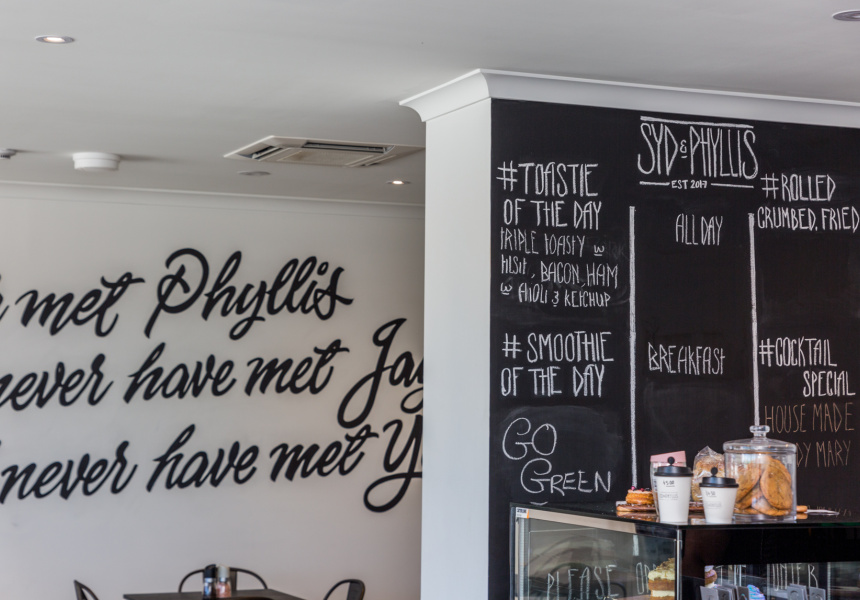 met Phyllis
never have met
never have met
SYD & PHYLLIS
EST 2017
#TOASTIE
OF THE DAY
TRIPLE TOASTY W
BACON, HAM
W AIOLI & KETCHUP
# SMOOTHIE
OF THE DAY
GO
GREEN
ALL DAY
BREAKFAST
#ROLLED
CRUMBED, FRIED
#COCKTAIL
SPECIAL
HOUSE MADE
MARY
PLEASE